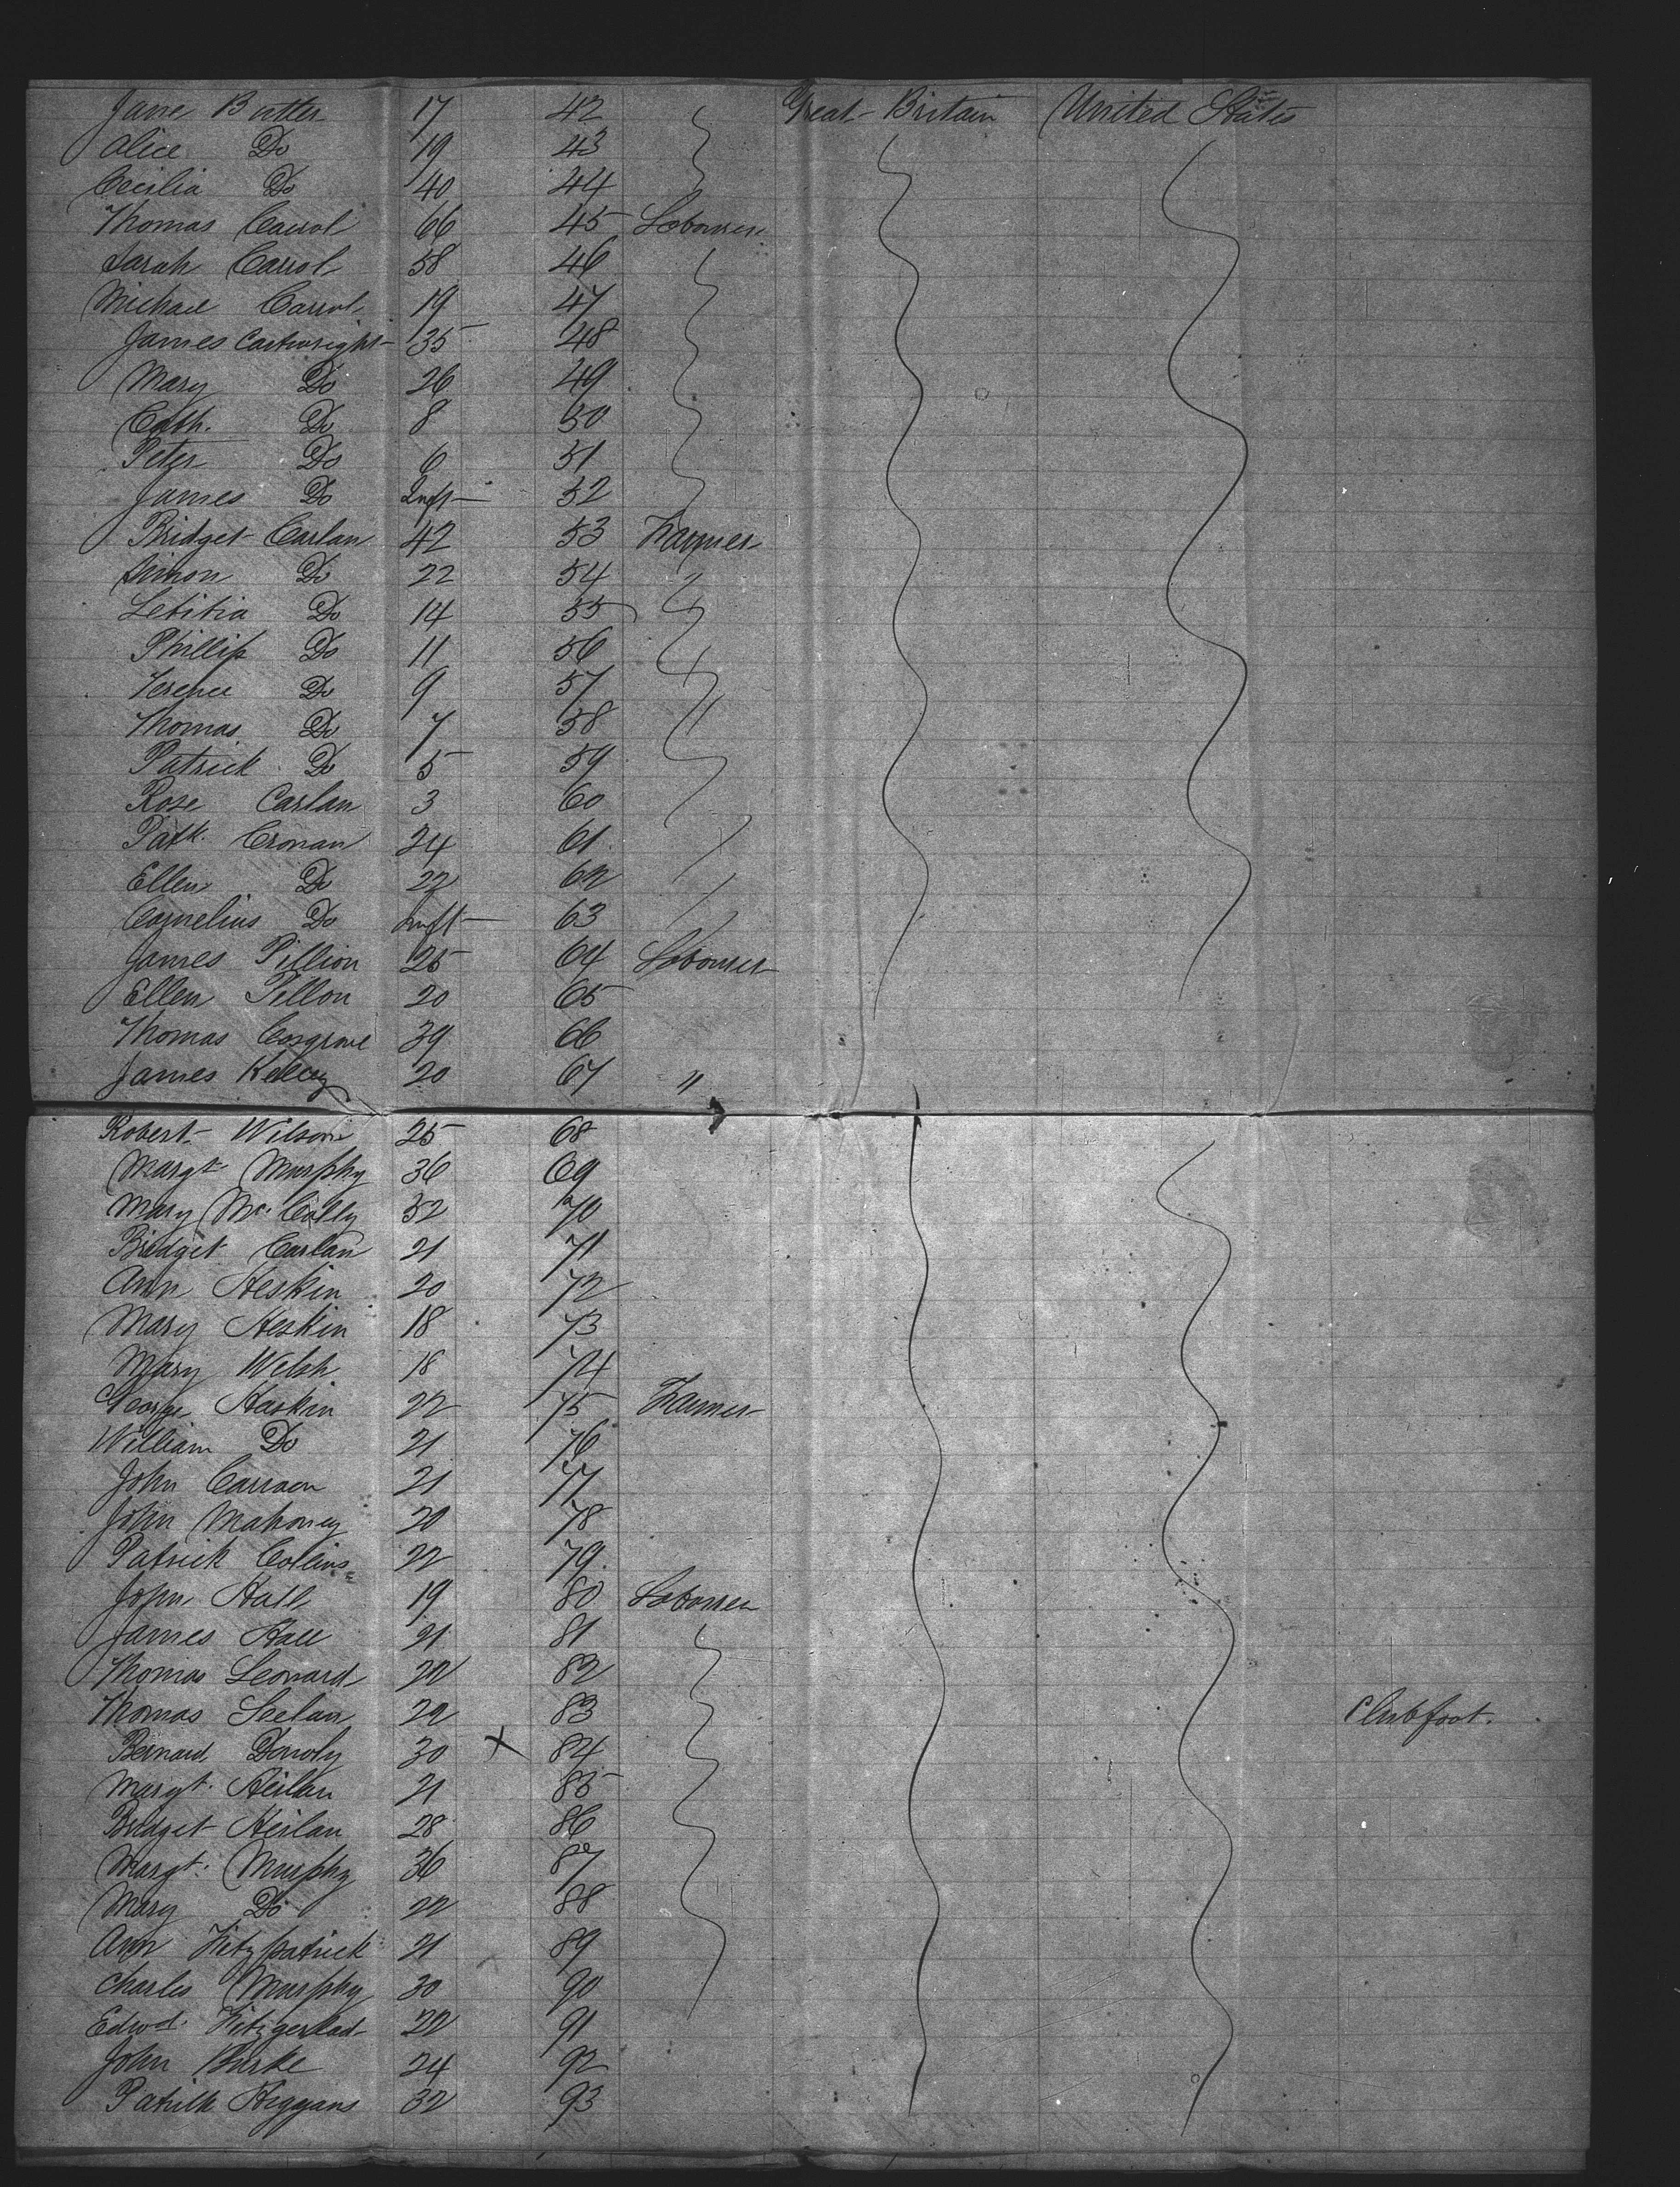 Jane Butler 17 42 Great Britain United States
Alice Do 19 43
Cecilia Do 40 44
Thomas Carrol 66 45 Labourer
Sarah Carrol 58 46
Michael Carrol 19 47
James Cartwright 35 48
Mary Do 26 49
Cath. Do 8 50
Peter Do 6 51
James Do Inft 52
Bridget Carlan 42 53 Farmer
Simon Do 22 54
Letitia Do 14 55
Phillip Do 11 56 "
Terence Do 9 57
Thomas Do 7 58 "
Patrick Do 5 59
Rose Carlan 3 60
Patk. Cronan 24 61
Ellen Do 22 62
Cornelius Do Inft 63
James Pillion 25 64 Labourer
Ellen Pillon 20 65
Thomas Cosgrove 39 66
James Kelcey 20 67 "
Robert Wilson 25 68
Margt Murphy 36 69
Mary Mc Cally 52 70
Bridget Carlan 21 71
Ann Heskin 20 72
Mary Heskin 18 73
Mary Welsh 18 74
George Haskin 22 75 Farmer
William Do 21 76
John 21 77
John Mahoney 20 78
Patrick Collins 22 79
John Hall 19 80 Labourer
James Hall 21 81
Thomas Leonard 22 82
Thomas 22 83 Clubfoot.
Bernard Donoly 30 X 84
Margt. Heilan 21 85
Bridget Heilan 28 86
Margt. Murphy 36 87
Mary Do 22 88
Ann Fitzpatrick 21 89
Charles Murphy 30 90
Edwd. Fitzgerlad 22 91
John Burke 24 92
Patrick Higgans 32 93